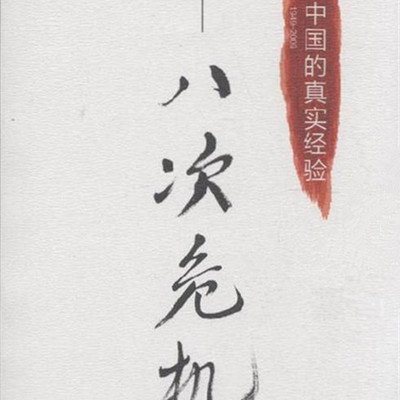 中国的真实经验
1949-2009
八次危机